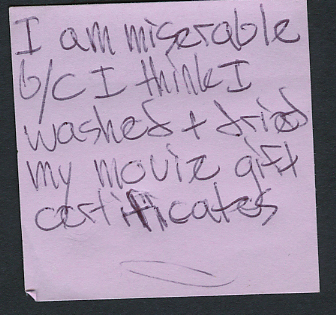 I am miserable
b/c I think I
washed + dried
my movie gift
certificates